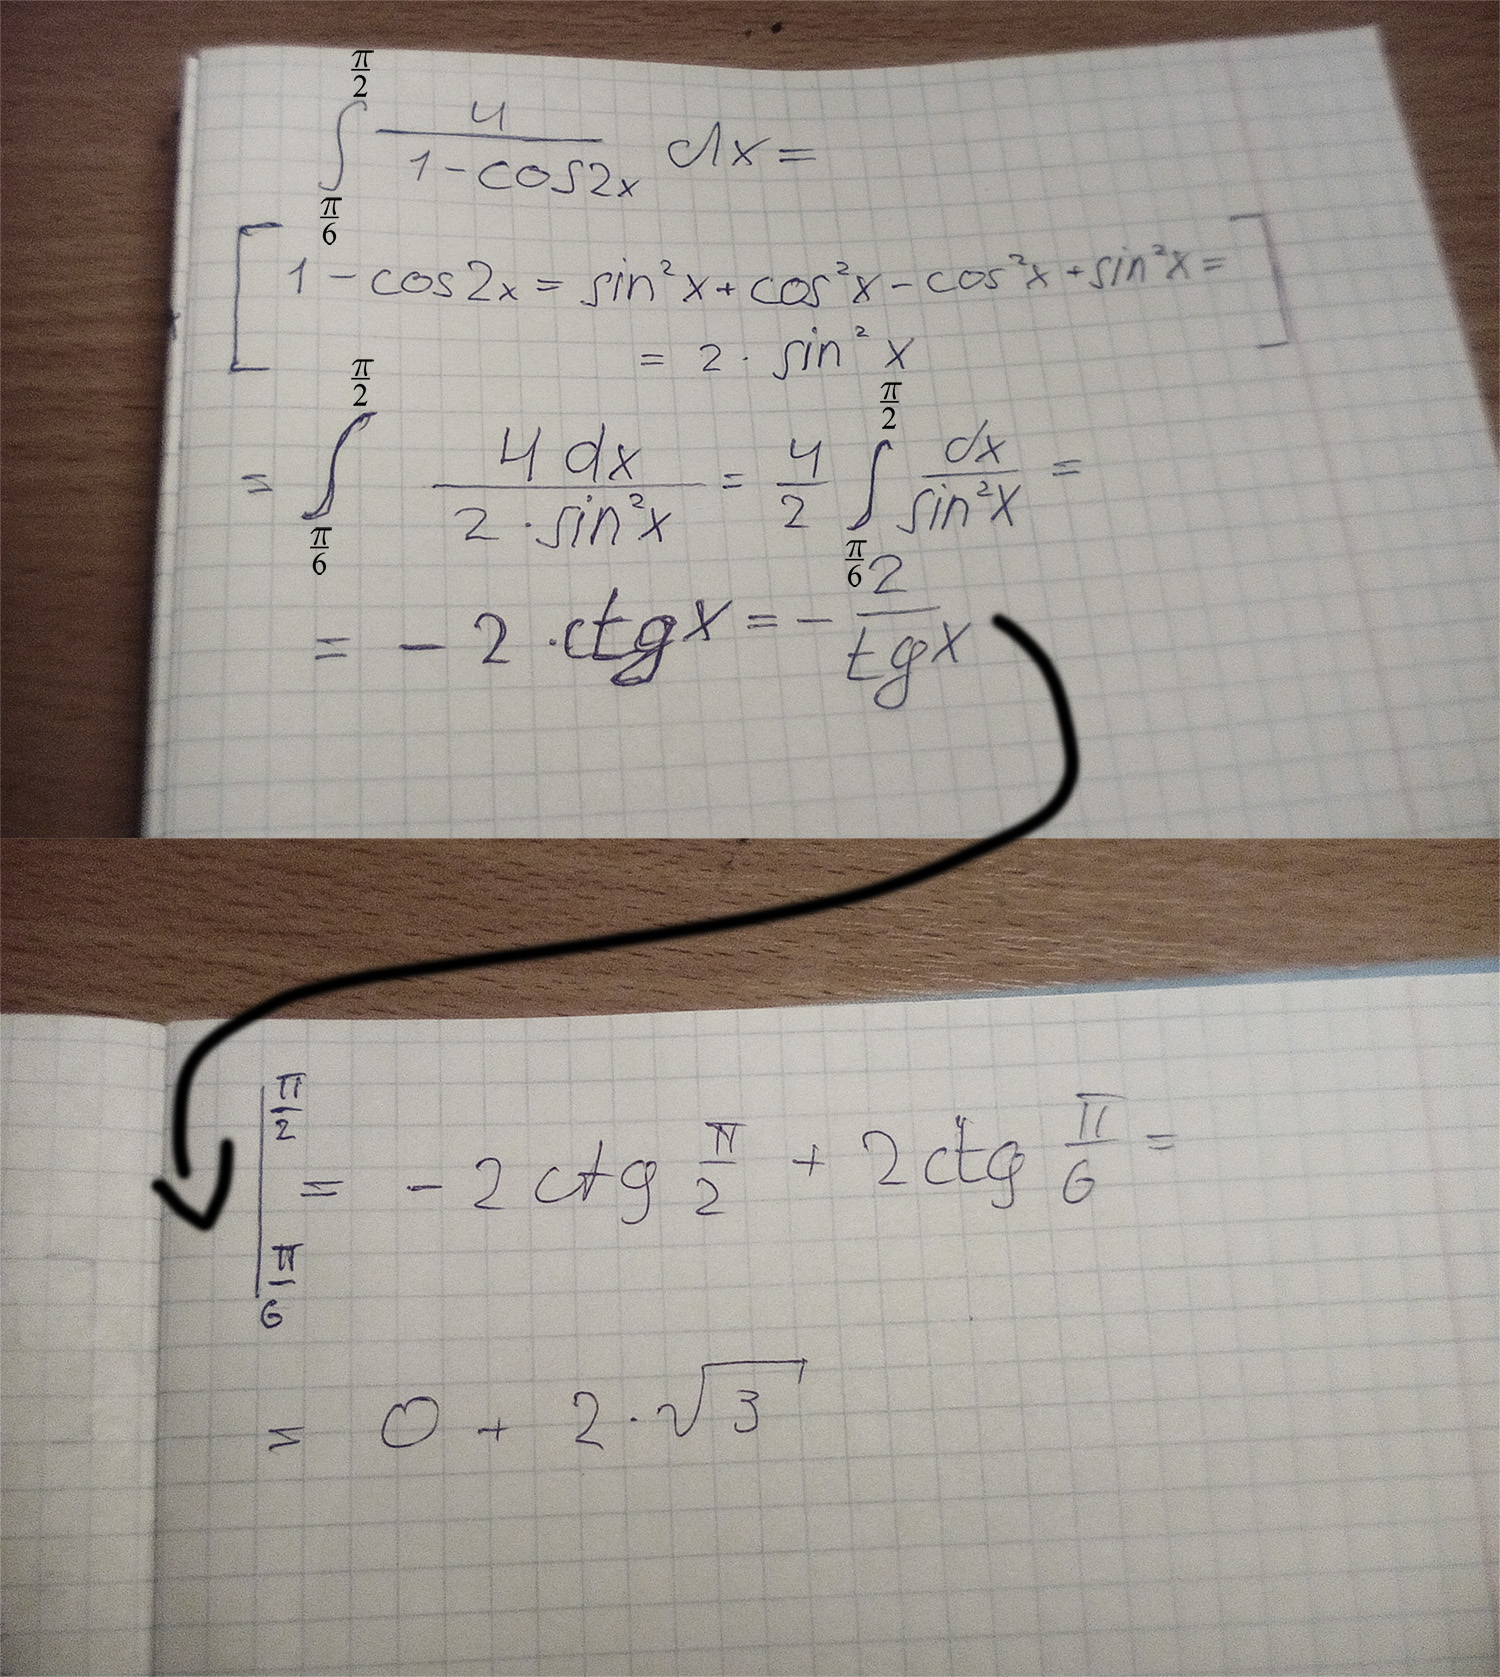 ∫_{π/6}^{π/2} 4/(1-cos2x) dx =
[1 - cos2x = sin²x + cos²x - cos²x + sin²x =
= 2 · sin²x]
= ∫_{π/6}^{π/2} 4dx/(2·sin²x) = 4/2 ∫_{π/6}^{π/2} dx/sin²x =
= -2 · ctgx = - 2/tgx
|_{π/6}^{π/2} = -2ctg π/2 + 2ctg π/6 =
= 0 + 2·√3